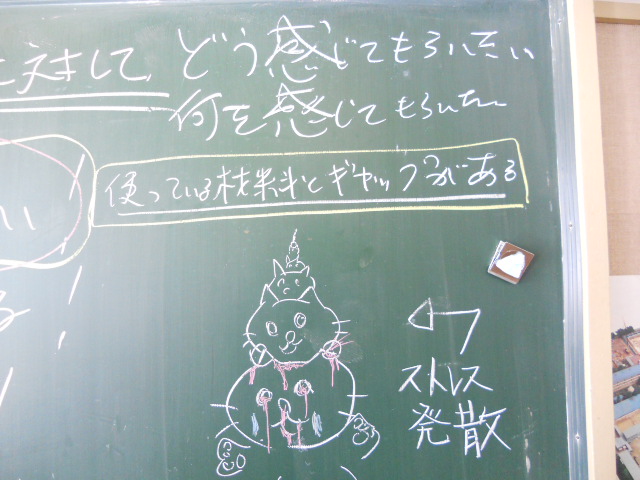 に対して、どう感じてもらいたい
何を感じてもらいたい
使っている材料とギャップがある
い
る!
ストレス
発散